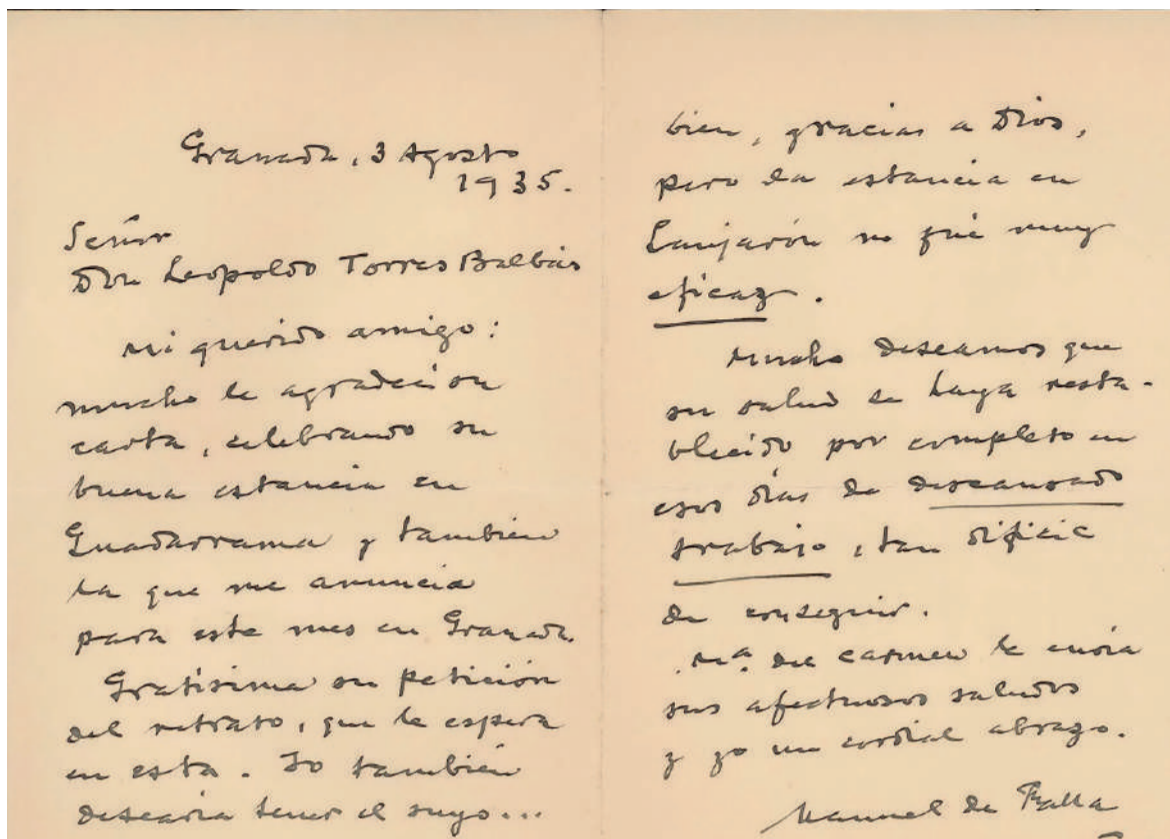 Granada, 3 Agosto
1935.
Señor
Don Leopoldo Torres Balbás
Mi querido amigo:
mucho le agradecí su
carta, celebrando su
buena estancia en
Guadarrama y también
la que me anuncia
para este mes en Granada.
Gratísima su petición
del retrato, que le espera
en esta. Yo también
desearía tener el suyo...
bien, gracias a Dios,
pero la estancia en
Lanjarón no fué muy
eficaz.
Mucho deseamos que
su salud se haya resta-
blecido por completo en
esos días de descansado
trabajo, tan difícil
de conseguir.
Mª. del Carmen le envía
sus afectuosos saludos
y yo un cordial abrazo.
Manuel de Falla